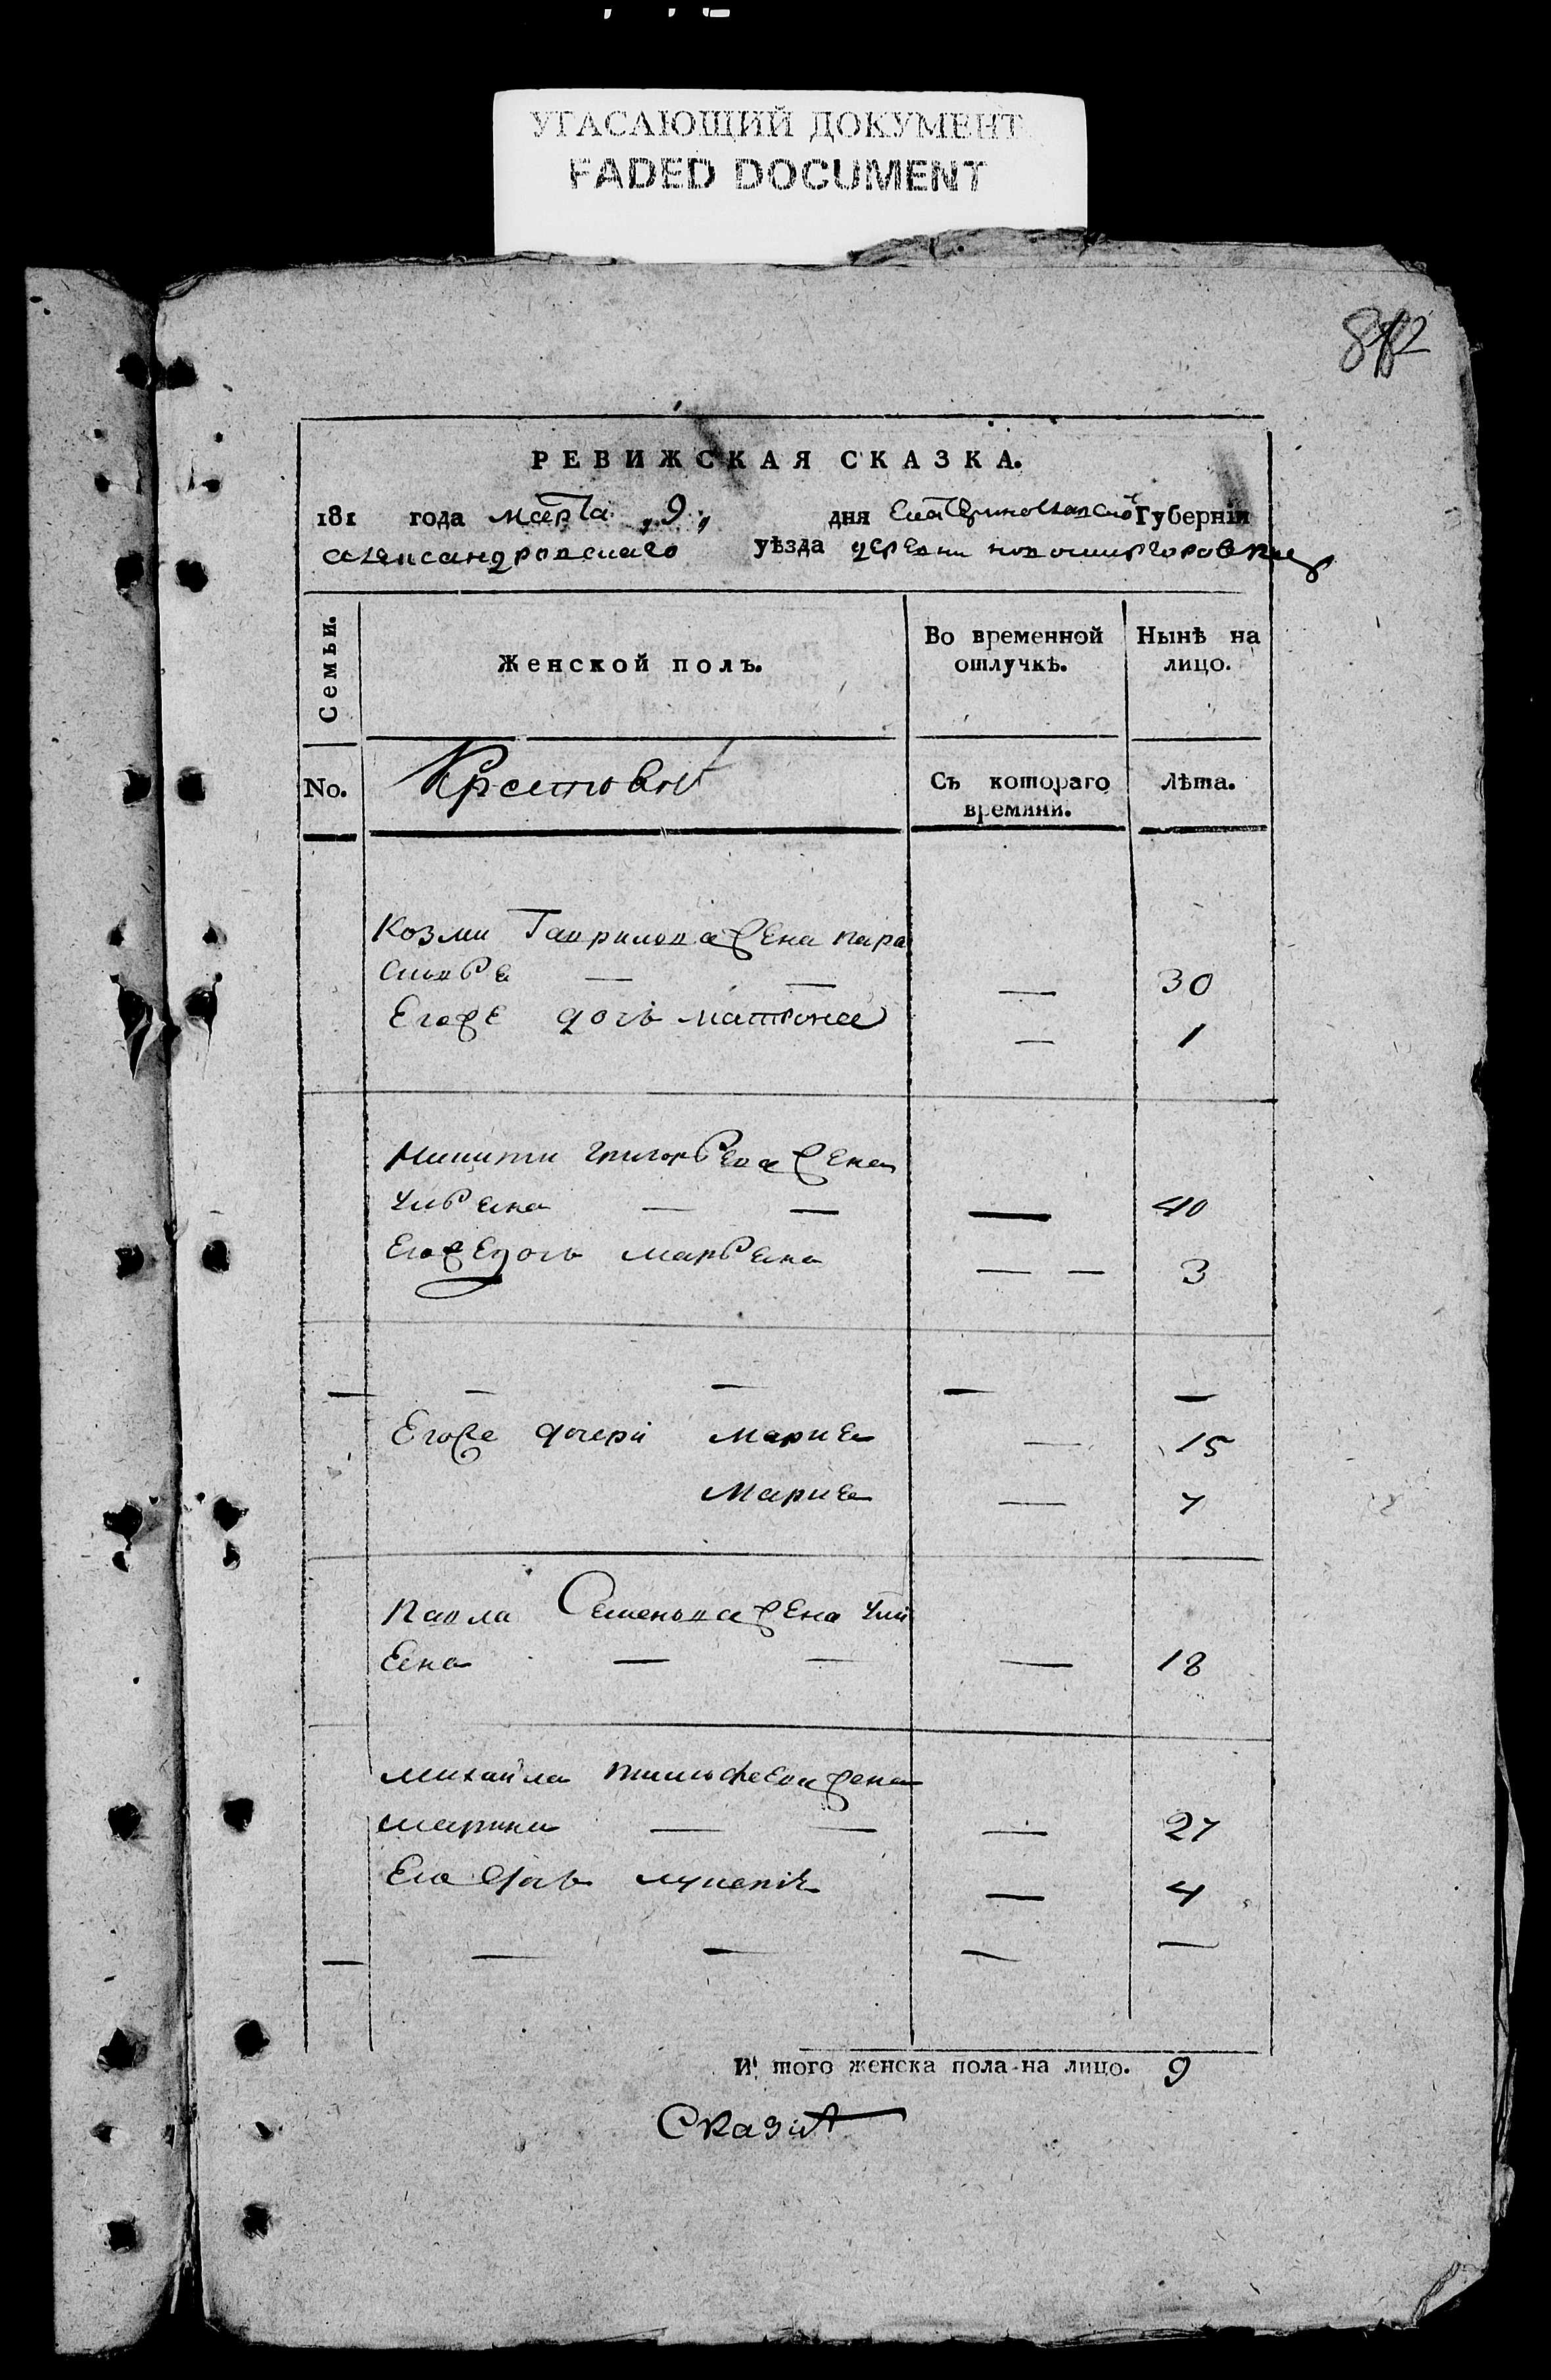 УГАСАЮЩИЙ ДОКУМЕНТ
FADED DOCUMENT
РЕВИЖСКАЯ СКАЗКА.
181 года марта „9„ дня Екатеринославской Губерніи
александровскаго уѣзда деревни новомиргоровки
Семьи.
Женской полъ.
Во временной отлучкѣ.
Нынѣ на лицо.
No.
Съ котораго времяни.
Лѣта.
Козми Гаврилова жена пара
сковье — — — 30
Егоже дочь матрона — 1
Никити григорьева жена
ульена — — — 40
Егоже дочь марьена — — 3
— — — — —
Егоже дочери Марие — 15
Марие — 7
павла Семенова жена ули
ена — — — 18
михайла тимофеева жена
марина — — — 27
Его дочь лукеріе — 4
— — — — —
И того женска пола на лицо. 9